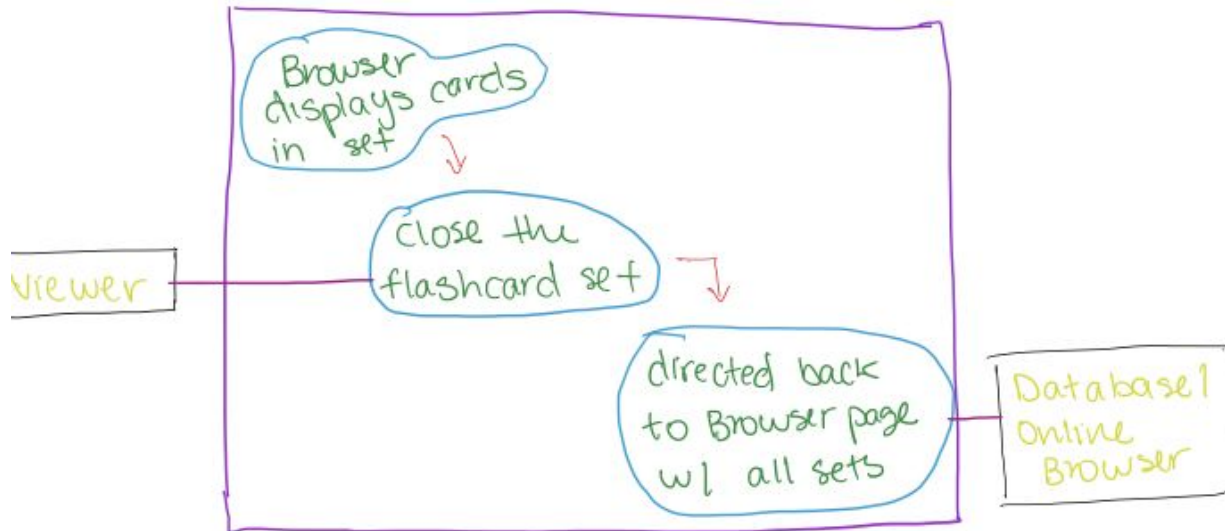 Browser
displays cards
in set
close the
flashcard set
viewer
directed back
to Browser page
w/ all sets
Database/
Online
Browser